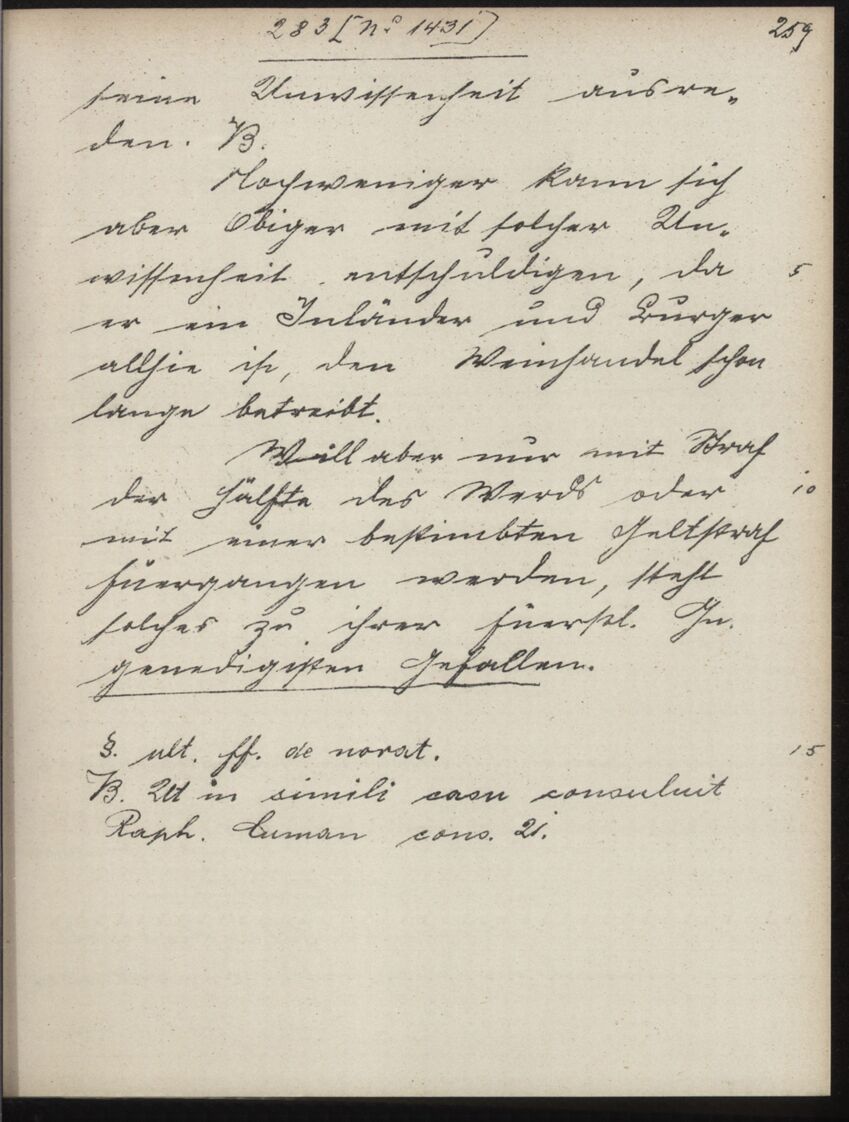 283 [No 1431] 259
seine Unwissenheit ausre„
den. B.
Nochweniger kann sich
aber Obiger mit solcher Un„
wissenheit entschuldigen, da 5
er ein Inländer und Burger
allhie ist, den Weinhandel schon
lange betreibt.
Will aber nur mit Straf
der Hälfte des Werds oder 10
mit einer bestimbten Geltstraf
füergangen werden, steht
solches zu ihrer füerstl. Gn.
genedigisten Gefallen.
§. ult. ff. de novat. 15
B. Ut in simili casu consuluit
Raph. Cuman cons. 21.